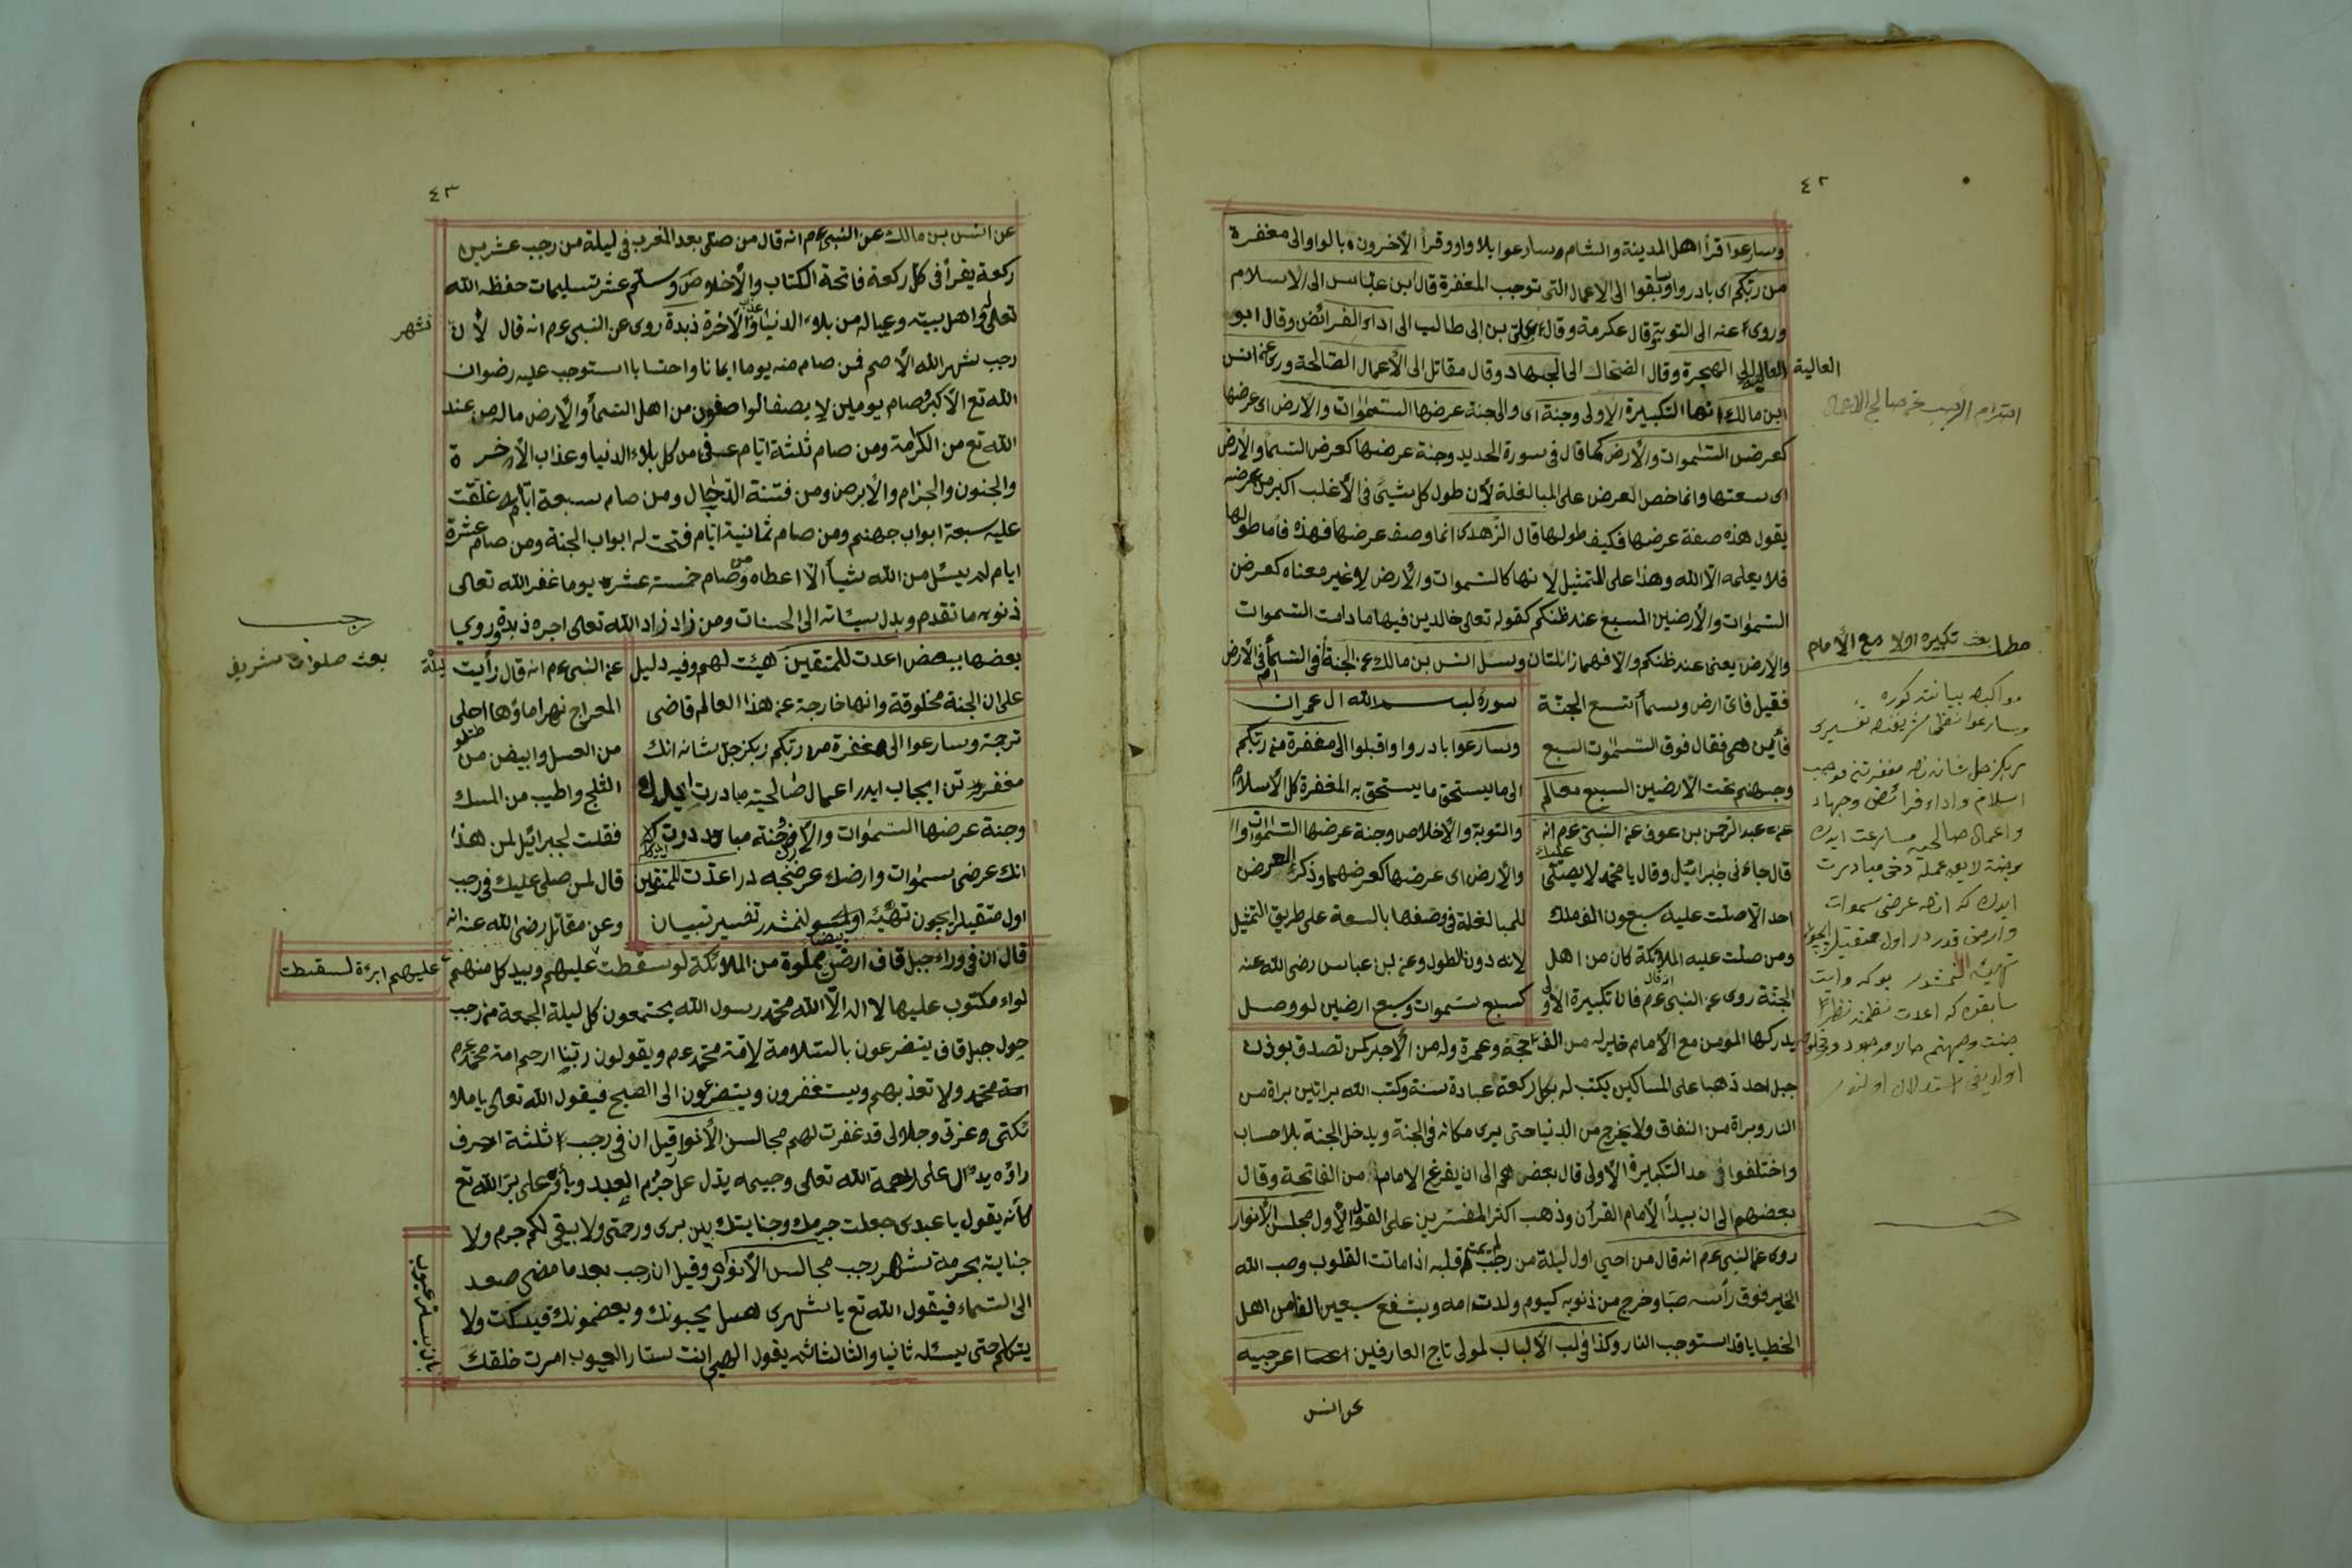 ٤٢
وسارعوا قرأ اهل المدينة والشام سارعوا بلا واو وقرأ الأخرون بالواو الى مغفرة
من ربكم اى بادروا وسابقوا الى الاعمال التى توجب المغفرة قال ابن عباس الى الاسلام
وروى عنه الى التوبة وقال عكرمة وقال على بن ابى طالب الى اداء الفرائض وقال ابو
العالية الى الهجرة وقال الضحاك الى الجهاد وقال مقاتل الى الأعمال الصالحة وروى عن انس
العالية
ابن مالك انها التكبيرة الاولى وجنة اى والى جنة عرضها السموات والارض اى عرضها
كعرض السموات والأرض كما قال فى سورة الحديد وجنة عرضها كعرض السمأ والأرض
اى سعتها وانما خص العرض على المبالغة لأن طول كل شيئ فى الأغلب اكبر من عرضه
يقول هذه صفة عرضها فكيف طولها قال الزهدى انما وصف عرضها فهذه فأما طولها
فلا يعلمه الا الله وهذا على التمثيل لانها كالسموات والأرض لا غير معناه كعرض
السموات والأرضين السبع عند ظنكم كقوله تعالى خالدين فيها ما دامت السموات
والارض يعنى عند ظنكم والا فهما زائلتان وسئل انس بن مالك عن الجنة أفى السمأ ام فى الأرض
مطلب بحث تكبيره اولا مع الأمام
فقيل فاى ارض وسمأ تسع الجنة
فأين هى فقال فوق السموات السبع
وجهنم تحت الارضين السبع معالم
عن عبد الرحمن بن عوف عن النبى عم انه
قال جاءنى جبرائيل وقال يا محمد لا يصلى عليك
احد الا صلت عليه سبعون الف ملك
ومن صلت عليه الملائكة كان من اهل
الجنة روى عن النبى عم انه قال فان تكبيرة الأولى
سورة لبسم الله ال عمران
وسارعوا بادروا واقبلوا الى مغفرة من ربكم
الى ما يستحق ما يستحق به المغفرة كل الأسلام
والتوبة والأخلاص وجنة عرضها السموات
والأرض اى عرضها كعرضهما وذكر العرض
للمبالغة فى وصفها بالسعة على طريق التمثيل
لانه دون الطول وعن ابن عباس رضى الله عنه
كسبع سموات وسبع ارضين لو وصل
يدركها المؤمن مع الأمام خير له من الف حجة وعمرة وله من الأجر كمن تصدق بوزن
جبل احد ذهبا على المساكين يكتب له بكل ركعة عبادة سنة وكتب الله براتين براة من
النار وبراة من النفاق ولا يخرج من الدنيا حتى يرى مكانه فى الجنة ويدخل الجنة بلا حساب
واختلفوا فى حد التكبيرة الأولى قال بعضهم الى ان يفرغ الامام من الفاتحة وقال
بعضهم الى ان يبدأ الأمام القرأن وذهب اكثر المفسرين على القول الأول مجلس الأنوار
روى عن النبى عم انه قال من احيى اول ليلة من رجب لم يمت قلبه اذا ماتت القلوب وصب الله
الخير فوق رأسه صبا وخرج من ذنوبه كيوم ولدت امه ويشفع سبعين الفا من اهل
الخطيايا قد استوجب النار وكذا فى لب الالباب لمولى تاج العارفين
عن انس
٤٣
عن انس بن مالك عن النبى عم انه قال من صلى بعد المغرب فى ليلة من رجب عشرين
ركعة يقرأ فى كل ركعة فاتحة الكتاب والأخلاص وسلم عشر تسليمات حفظه الله
تعالى واهل بيته وعياله من بلاء الدنيا وعذاب الأخرة زبدة روى عن النبى عم انه قال لأن شهر
رجب شهر الله الأصم فمن صام منه يوما ايمانا واحتسابا استوجب عليه رضوان
الله تع الأكبر وصام يومين لا يصف الواصفون من اهل السمأ والأرض ماله من عند
الله تع من الكرامة ومن صام ثلثة ايام عوفى من كل بلاء الدنيا وعذاب الأخرة
والجنون والجذام والأبرص ومن فتنة الدجال ومن صام سبعة ايام غلقت
عليه سبعة ابواب جهنم ومن صام ثمانية ايام فتحت له ابواب الجنة ومن صام عشرة
ايام لم يسئل من الله شيأ الا اعطاه ومن صام خمسة عشر يوما غفر الله تعالى
ذنوبه ما تقدم وبدل سيئاته الى الحسنات ومن زاد زاد الله تعالى اجره زبدة وروى
رجب
بحث صلوات شريف
بعضها ببعض اعدت للمتقين هيئت لهم وفيه دليل
على ان الجنة مخلوقة وانها خارجة عن هذا العالم قاضى
ترجمة وسارعوا الى مغفرة من ربكم ربكز جل شانه انك
مغفرتن ايجاب ايدر اعمال صالحيته مبادرت ايدك
وجنة عرضها السموات والأرض
انك عرضى سموات وارضك عرضنجه در اعدت للمتقين
اول متقيلر ايچون تهيئه اولنمشدر تفسير تبيان
عن النبى عم انه قال رأيت ليلة
المعراج نهرا ماؤها احلى
من العسل وابيض من
الثلج واطيب من المسك
فقلت لجبرائيل لمن هذا
قال لمن صلى عليك فى رجب
وعن مقاتل رضى الله عنه انه
قال ان فى وراء جبل قاف ارض بيضا مملوة من الملائكة لو سقطت عليهم وبيد كل منهم
عليهم ابرة لسقطت
لواء مكتوب عليها لا اله الا الله محمد رسول الله يجتمعون كل ليلة الجمعة من رجب
حول جبل قاف يتضرعون بالسلامة لامة محمد عم ويقولون ربنا ارحم امة محمد عم
امة محمد ولا تعذبهم ويستغفرون ويتضرعون الى الصبح فيقول الله تعالى يا ملا
ئكتى وعزتى وجلالى قد غفرت لهم مجالس الأنوار قيل ان فى رجب ثلثة احرف
راؤه يدل على رحمة الله تعالى وجيمه يدل على جرم العبد وباؤه على بر الله تع
كأنه يقول يا عبدى جعلت جرمك وجنايتك بين برى ورحمتى ولا يبقى لكم جرم ولا
جناية بحرمة شهر رجب مجالس الأنوار وقيل ان رجب بعد ما مضى صعد
الى السماء فيقول الله تع يا شهرى هل يحبونك ويعضمونك فيسكت ولا
يتكلم حتى يسئله ثانيا والثالثا ثم يقول الهى انت ستار العيوب امرت خلقك
بان يستر عيوب